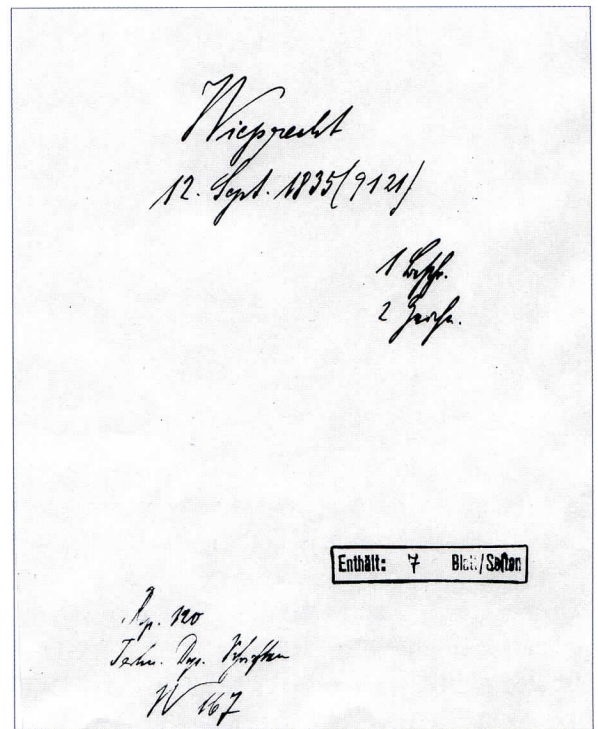 Wieprecht
12. Sept. 1835 (9121)
1 Beschr.
2 Zeichn.
Enthält: 7 Blatt/Seiten
Rep. 120
Techn. Dep. Schriften
W 167